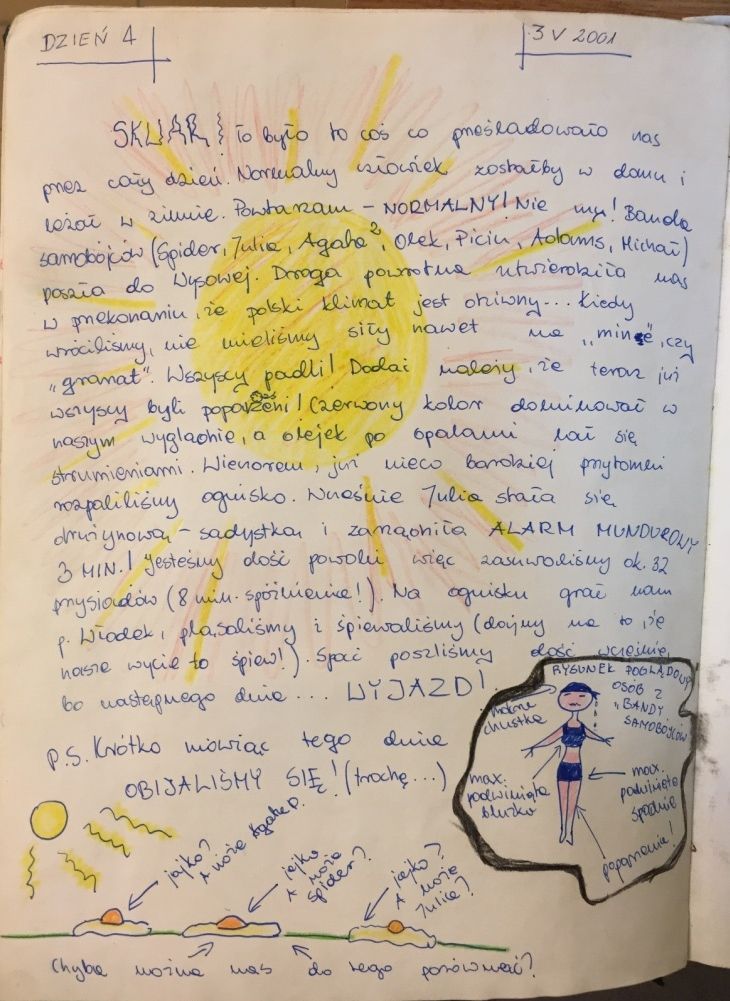 DZIEŃ 4
3 V 2001
SKWAR! To było to coś co prześladowało nas
przez cały dzień. Normalny człowiek zostałby w domu i
leżał w zimnie. Powtarzam - NORMALNY! Nie my! Banda
samobójców (Spider, Julia, Agata², Olek, Piciu, Adams, Michał)
poszła do Wysowej. Droga powrotna utwierdziła nas
w przekonaniu, że polski klimat jest dziwny... Kiedy
wróciliśmy, nie mieliśmy siły nawet na „minę", czy
„granat". Wszyscy padli! Dodać należy, że teraz już
wszyscy byli poparzeni! Czerwony kolor dominował w
naszym wyglądnie, a olejek po opalaniu lał się
strumieniami. Wieczorem, już nieco bardziej przytomni
rozpaliliśmy ognisko. Wcześnie Julia stała się
drużynową - sadystką i zarządziła ALARM MUNDUROWY
3 MIN.! Jesteśmy dość powolni więc zasuwaliśmy ok. 32
przysiadów (8 min. spóźnienia!). Na ognisku grał nam
p. Włodek, pląsaliśmy i śpiewaliśmy (dojmy na to, że
nasze wycie to śpiew!). Spać poszliśmy dość wcześnie,
bo następnego dnia.... WYJAZD!
P.S. Krótko mówiąc tego dnia
OBIJALIŚMY SIĘ! (trochę...)
RYSUNEK POGLĄDOWY
OSÓB Z
„BANDY
SAMOBÓJCÓW"
mokra
chustka
max.
podwinięta
bluzka
max.
podwinięte
spodnie
poparzenia!
jajko?
A może Agata P.
jajko
A może
Spider?
jajko?
A może
Julia?
Chyba można nas do tego porównać?